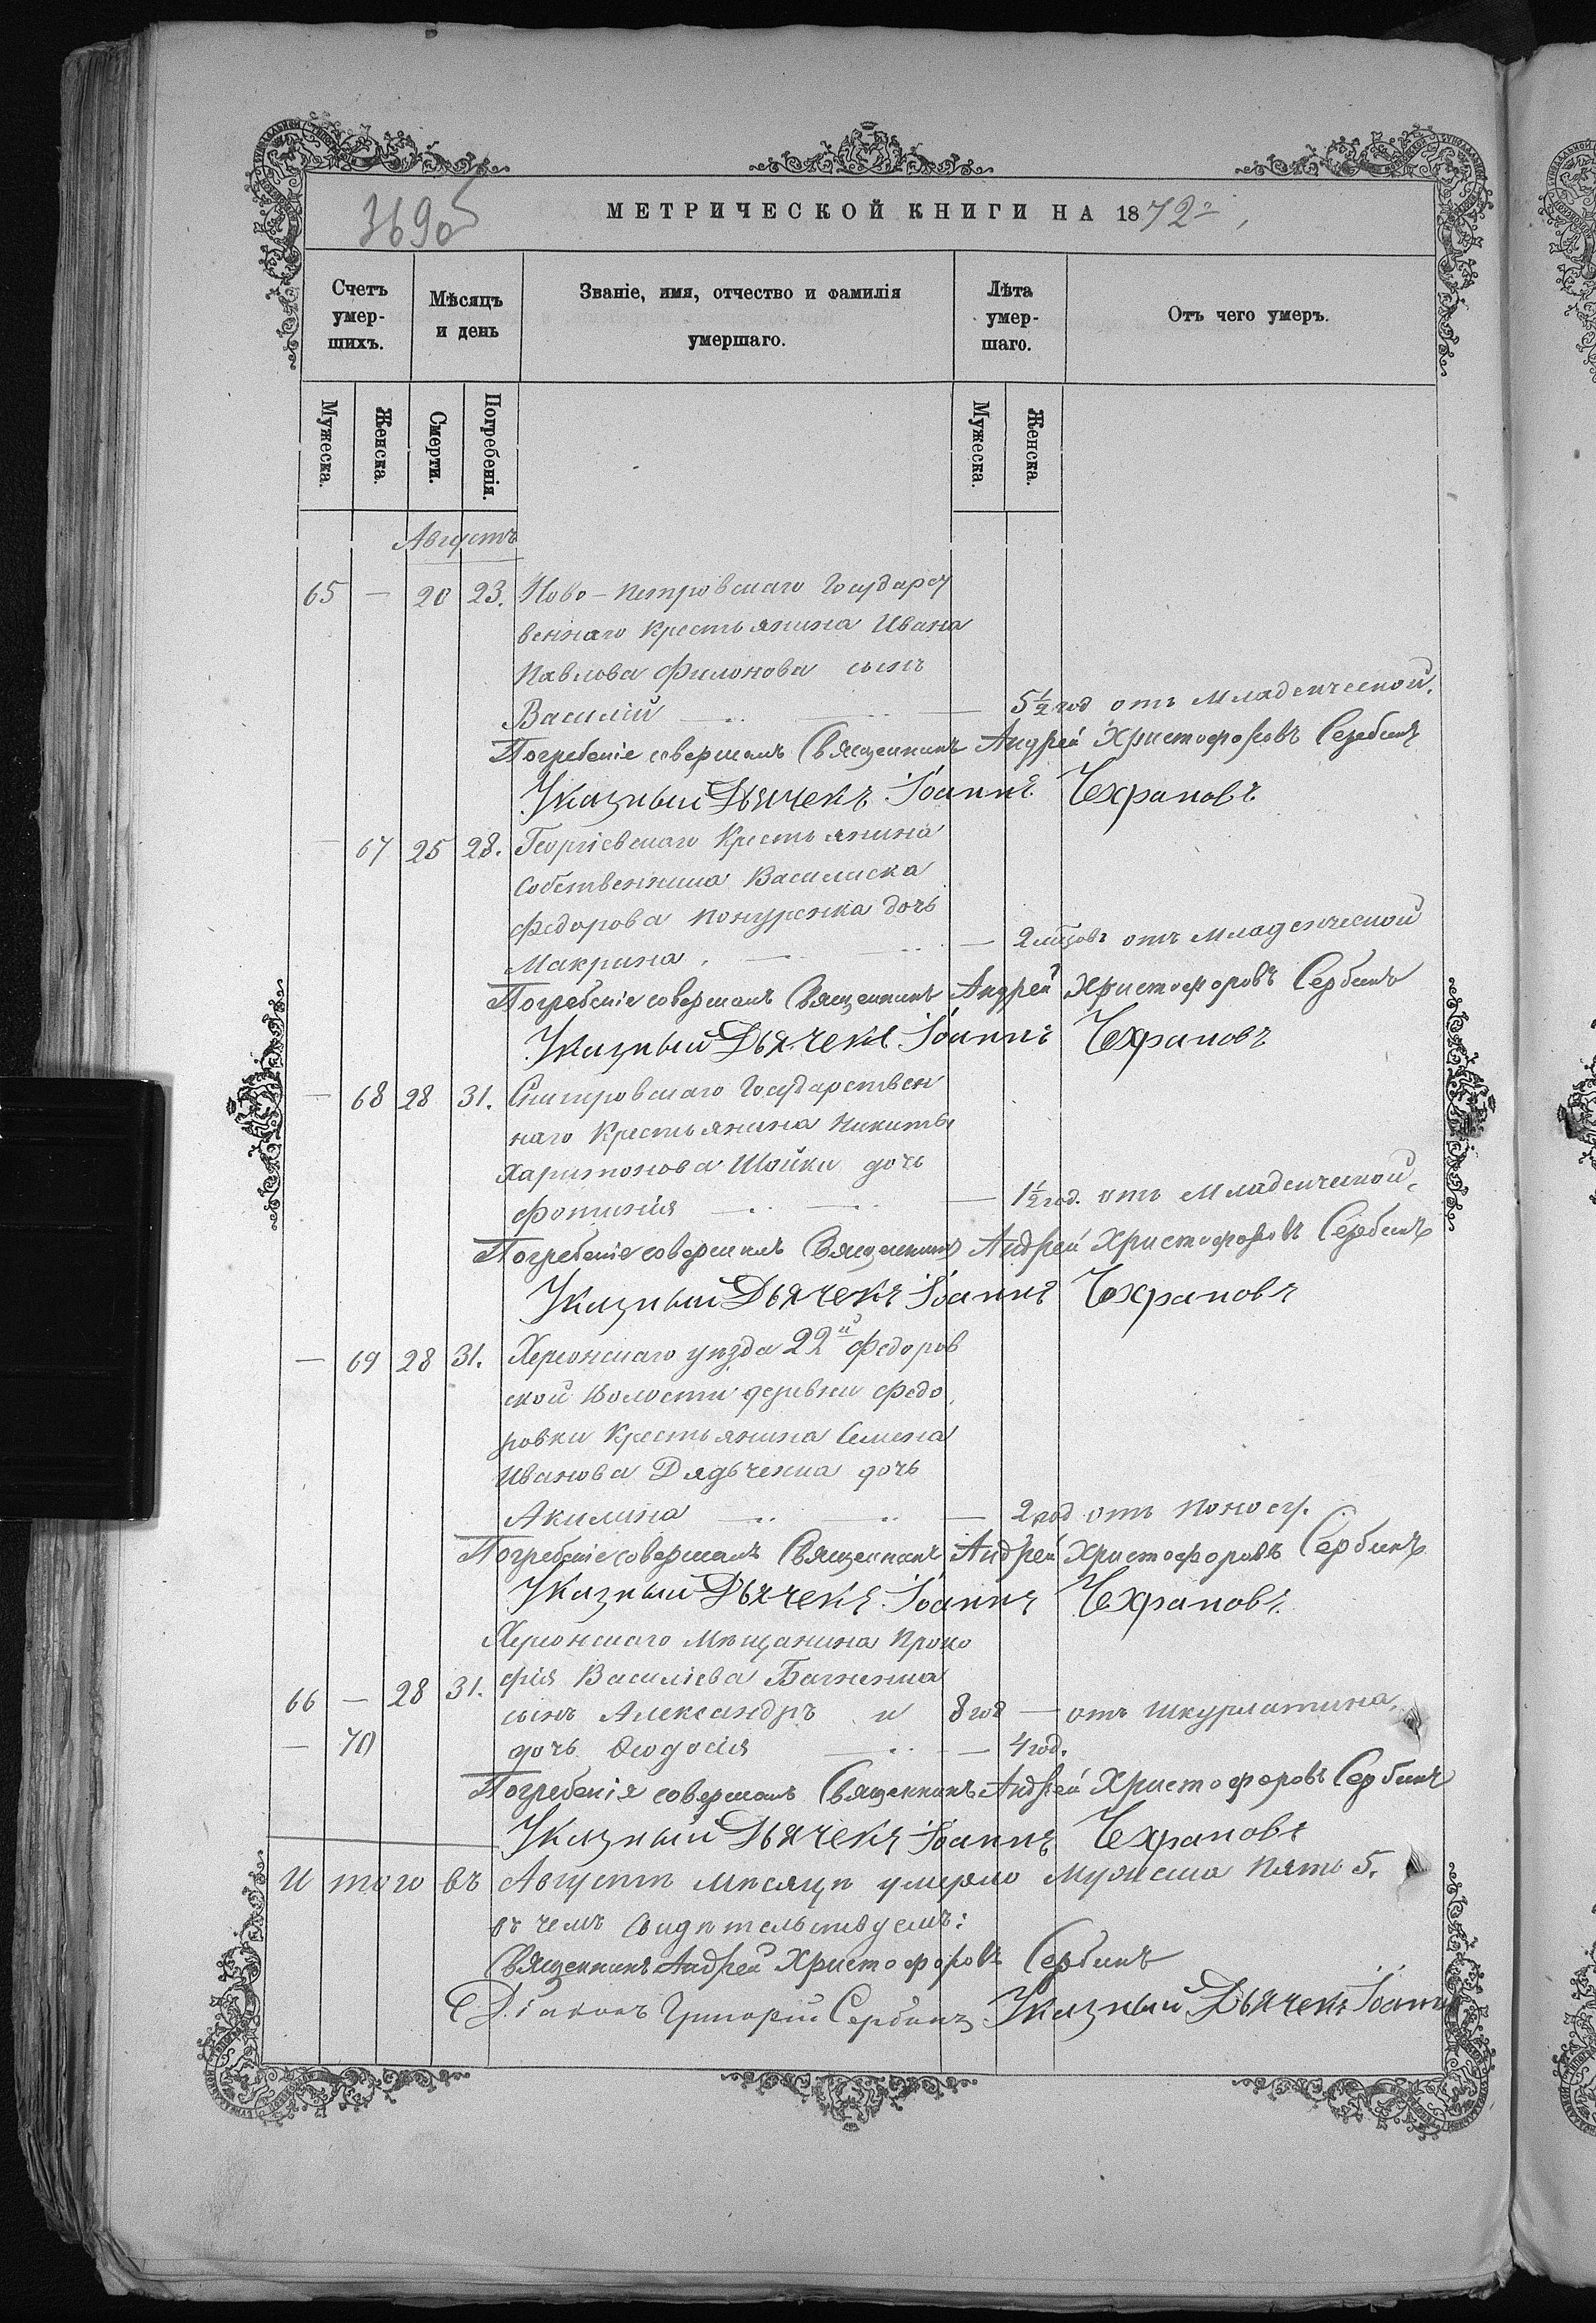 3690
МЕТРИЧЕСКОЙ КНИГИ НА 1872
Счетъ умер-шихъ.
Мѣсяцъ и день
Званіе, имя, отчество и фамилія умершаго.
Лѣта умер-шаго.
Отъ чего умеръ.
Мужеска. Женска. Смерти. Погребенія. Мужеска. Женска.
Августъ
65 — 20 23. Ново-Петровскаго Государст
веннаго Крестьянина Ивана
Павлова Филонова сынъ
Василій — 5½ год отъ Младенческой.
Погребеніе совершалъ Священникъ Андрей Христофоровъ Сербинъ
Указный Дьячекъ Іоаннъ Чехрановъ
— 67 25 28. Георгіевскаго Крестьянина
Собственника Василиска
Федорова дочь
Макрина. — 2 отъ Младенческой
Погребеніе совершалъ Священникъ Андрей Христофоровъ Сербинъ
Указный Дьячекъ Іоаннъ Чехрановъ
— 68 28 31. Снигировскаго Государствен
наго Крестьянина Никиты
Харитонова Шойки дочь
Фотинія — 1½ год. отъ Младенческой.
Погребеніе совершалъ Священникъ Андрей Христофоровъ Сербинъ
Указный Дьячекъ Іоаннъ Чехрановъ
— 69 28 31. Херсонскаго уѣзда 22й Федоров
ской Волости деревни Федо
ровки Крестьянина Семена
Иванова Дядьченка дочь
Акилина — 2 год отъ Поносу.
Погребеніе совершалъ Священникъ Андрей Христофоровъ Сербинъ
Указный Дьячекъ Іоаннъ Чехрановъ
Херсонскаго Мѣщанина Проко
66 — 28 31. фія Василіева
сынъ Александръ и 8 год — отъ
— 70 дочь Ѳеодосія — 4 год.
Погребенія совершалъ Священникъ Андрей Христофоровъ Сербинъ
Указный Дьячекъ Іоаннъ Чехрановъ
Итого въ Августѣ мѣсяцѣ умерло Мужеска Пять 5.
въ чемъ свидѣтельствуемъ:
Священникъ Андрей Христофоровъ Сербинъ
Діаконъ Григорій Сербинъ Указный Дьячекъ Іоаннъ